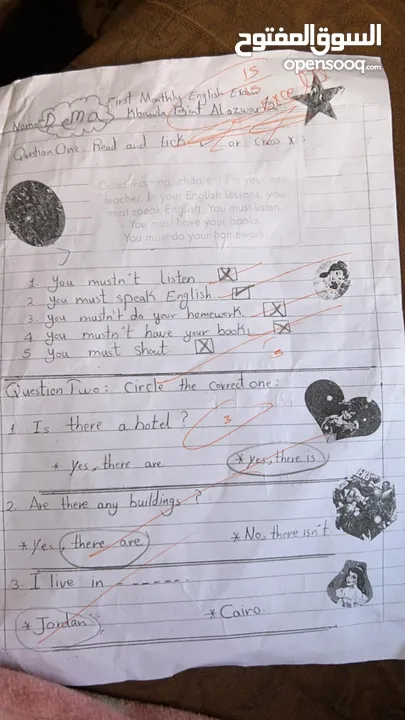 السوق المفتوح
opensooq.com
First Monthly English Exam
15
Name: Dema
Khawla Bint Alazwar
Question One: Read and tick ✓ or cross X:
Good morning, children! I'm your new
teacher. In your English lessons, you
must speak English. You must listen.
You must have your books.
You must do your homework.
1. You mustn't listen. X
2. you must speak English ✓
3. you mustn't do your homework X
4 you mustn't have your books X
5 you must shout X
5
Question Two: Circle the correct one:
1. Is there a hotel?
3
* yes, there are
* yes, there is
2. Are there any buildings?
* Yes, there are
* No, there isn't
3. I live in ------.
* Jordan
* Cairo.